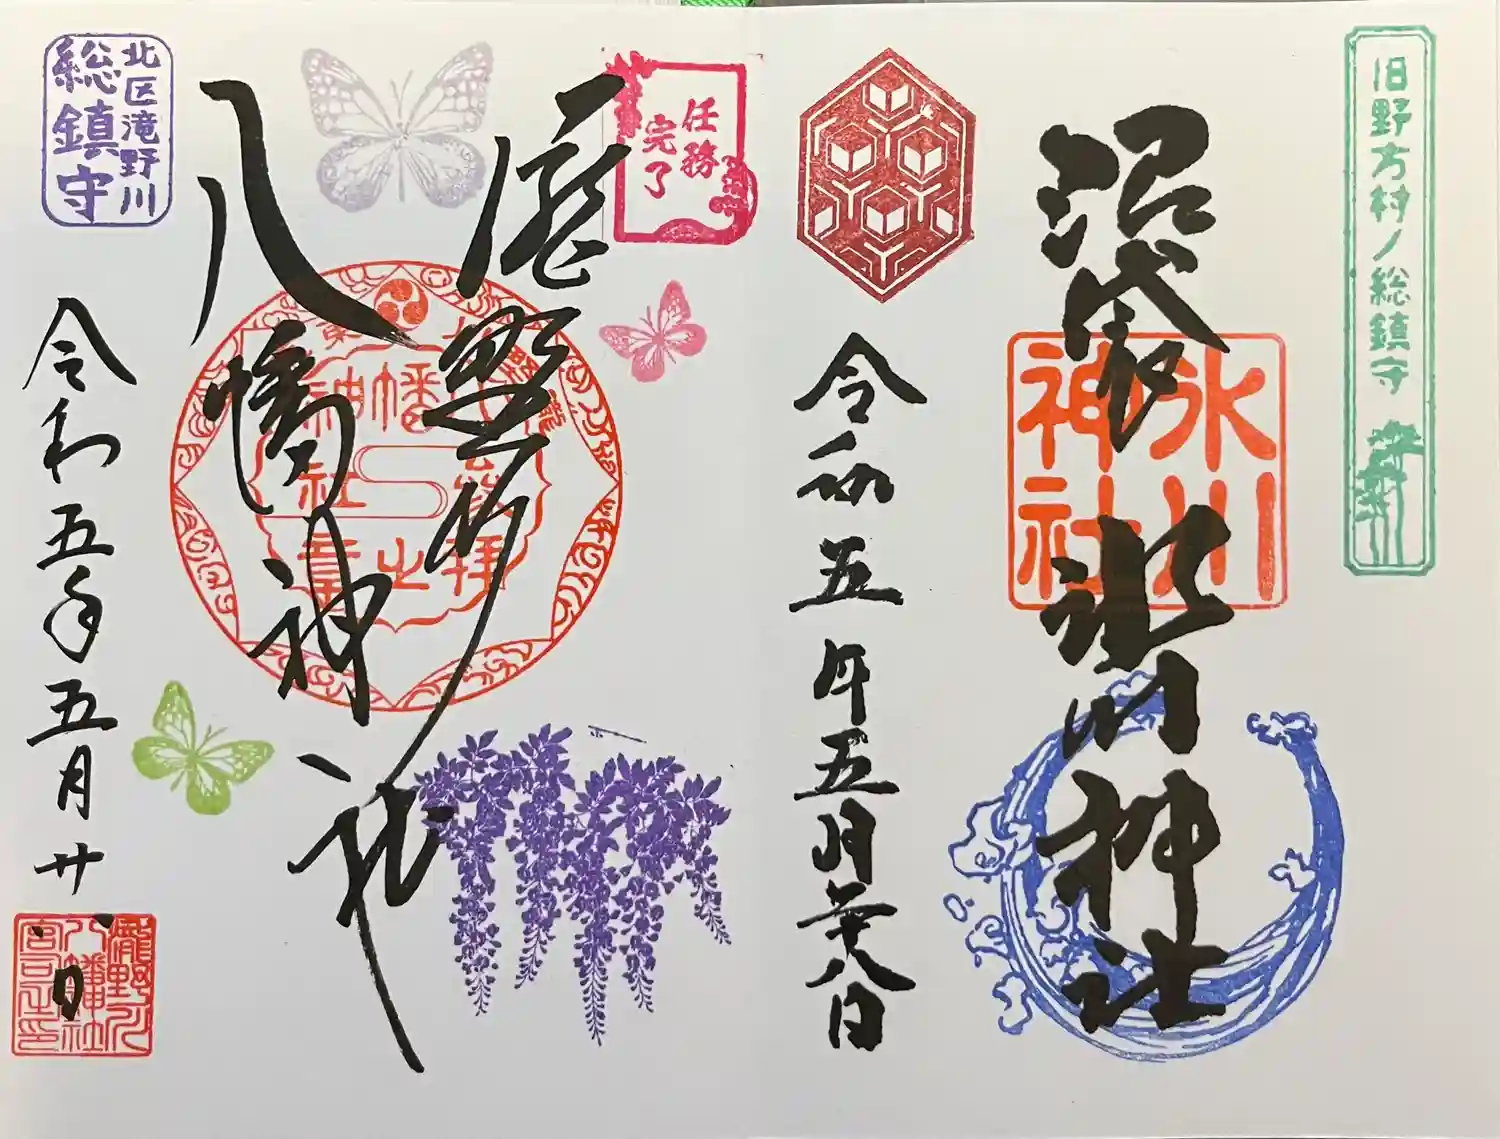 旧野方村ノ総鎮守
沼袋氷川神社
氷川
神社
令和五年五月廿八日
任務
完了
滝野川
八幡神社
北区滝野川
総鎮守
令和五年五月廿
日
瀧野川
八幡神社
宮司之印